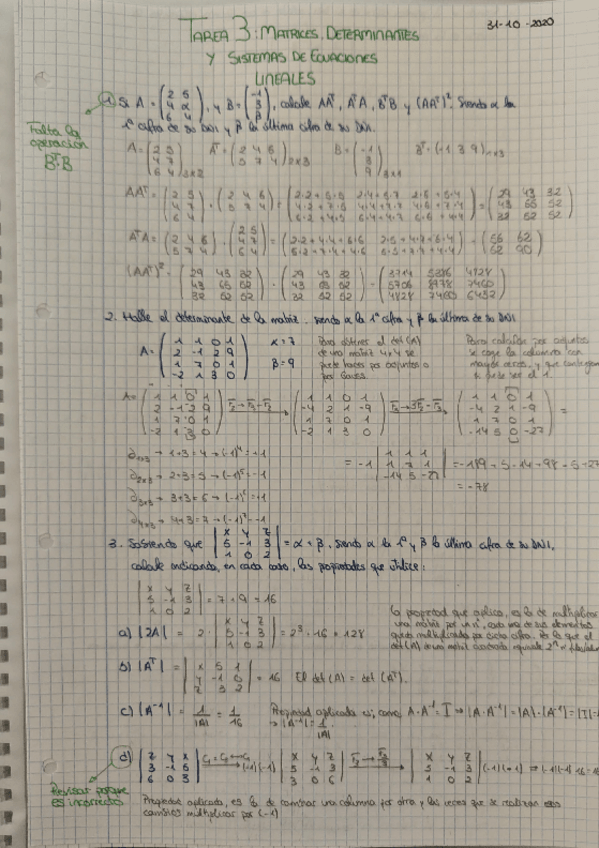 31-10-2020
TAREA 3: MATRICES, DETERMINANTES
Y SISTEMAS DE ECUACIONES
LINEALES
1. Si A = (2 5 / 4 α / 6 4), y B = (-1 / 3 / β), calcule AAᵀ, AᵀA, BᵀB y (AAᵀ)². Siendo α la
1ª cifra de su DNI y β la última cifra de su DNI.
Falta la
operación
BᵀB
A = (2 5 / 4 7 / 6 4)₃ₓ₂ Aᵀ = (2 4 6 / 5 7 4)₂ₓ₃ B = (-1 / 3 / 9)₃ₓ₁ Bᵀ = (-1 3 9)₁ₓ₃
AAᵀ = (2 5 / 4 7 / 6 4) · (2 4 6 / 5 7 4) = (2·2+5·5 2·4+5·7 2·6+5·4 / 4·2+7·5 4·4+7·7 4·6+7·4 / 6·2+4·5 6·4+4·7 6·6+4·4) = (29 43 32 / 43 65 52 / 32 52 52)
AᵀA = (2 4 6 / 5 7 4) · (2 5 / 4 7 / 6 4) = (2·2+4·4+6·6 2·5+4·7+6·4 / 5·2+7·4+4·6 5·5+7·7+4·4) = (56 62 / 62 90)
(AAᵀ)² = (29 43 32 / 43 65 52 / 32 52 52) · (29 43 32 / 43 65 52 / 32 52 52) = (3714 5706 4828 / 5706 8778 7460 / 4828 7460 6432)
2. Halle el determinante de la matriz. siendo α la 1ª cifra y β la última de su DNI
A = (1 1 0 1 / 2 -1 2 9 / 1 7 0 1 / -2 1 3 0) α = 7
β = 9
Para obtener el det(A)
de una matriz 4x4 se
puede hacer por adjuntos o
por Gauss.
Para calcular por adjuntos
se coge la columna con
mayor ceros, y que contengan
si puede ser el 1.
A = (1 1 0 1 / 2 -1 2 9 / 1 7 0 1 / -2 1 3 0) → (1 1 0 1 / -4 2 1 -9 / 1 7 0 1 / -2 1 3 0) → (1 1 0 1 / -4 2 1 -9 / 1 7 0 1 / -14 5 0 -27) =
∂₁ₓ₃ → 1+3=4 → (-1)⁴ = +1
= -1 |1 1 1 / 1 7 1 / -14 5 -27| = -189+5-14+98-5+27
∂₂ₓ₃ → 2+3=5 → (-1)⁵ = -1
= -78
∂₃ₓ₃ → 3+3=6 → (-1)⁶ = +1
∂₄ₓ₃ → 4+3=7 → (-1)⁷ = -1
3. Sabiendo que |x y z / 5 -1 3 / 1 0 2| = α + β, siendo α la 1ª y β la última cifra de su DNI,
calcule indicando, en cada caso, las propiedades que utilice:
|x y z / 5 -1 3 / 1 0 2| = 7 + 9 = 16
a) |2A| = 2 · |x y z / 5 -1 3 / 1 0 2| = 2³ · 16 = 128
La propiedad que aplico, es la de multiplicar
una matriz por un nº, cada uno de sus elementos
queda multiplicado por dicha cifra. Por lo que el
det(A) de una matriz cuadrada equivale 2ⁿ
b) |Aᵀ| = |x 5 1 / y -1 0 / z 3 2| = 16 El det(A) = det(Aᵀ).
c) |A⁻¹| = 1/|A| = 1/16 Propiedad aplicada es; como A·A⁻¹ = I → |A·A⁻¹| = |A|·|A⁻¹| = |I| =
→ |A⁻¹| = 1/|A|
d) |z y x / 3 -1 5 / 6 0 3| → (-1)(-1) |x y z / 5 -1 3 / 3 0 6| → |x y z / 5 -1 3 / 1 0 2| (-1)(-1) → (-1)(-1) 16 = 16
Revisar porque
es incorrecto
Propiedad aplicada, es la de cambiar una columna por otra y las veces que se realizan esos
cambios multiplicar por (-1)